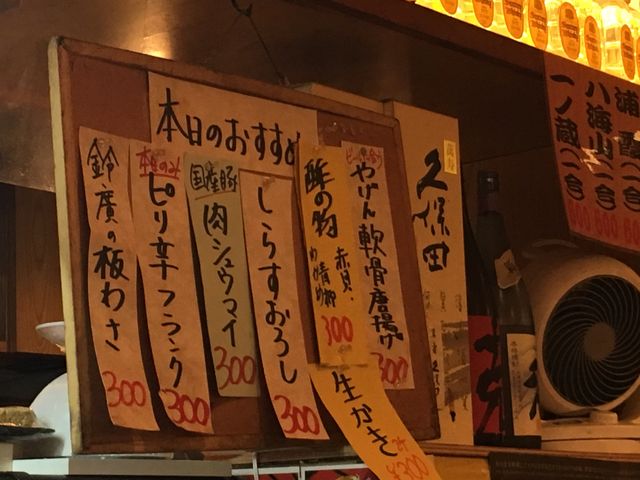 本日のおすすめ
ビールに合う
やげん軟骨唐揚げ
300
酢の物
赤貝
300
しらすおろし
300
国産豚
肉シュウマイ
300
本日のみ
ピリ辛フランク
300
鈴廣の板わさ
300
生かき
¥300
久保田
浦霞 一合
八海山 一合
一ノ蔵 一合
600
600